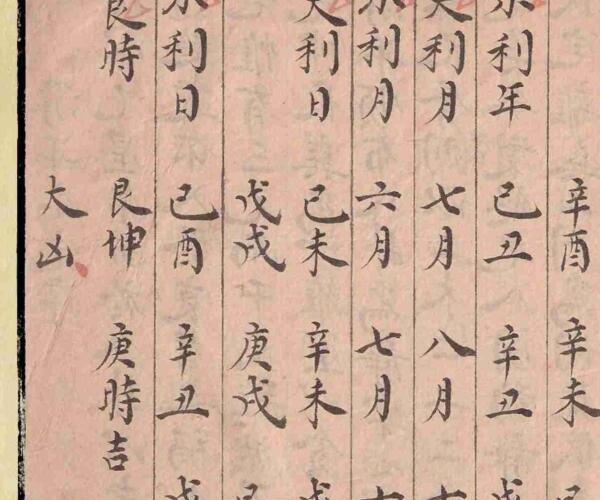 辛酉 辛未
利年 己丑 辛丑
大利月 七月 八月
利月 六月 七月
大利日 己未 辛未
戊戌 庚戌
利日 己酉 辛丑
良時 艮坤 庚時吉
大凶